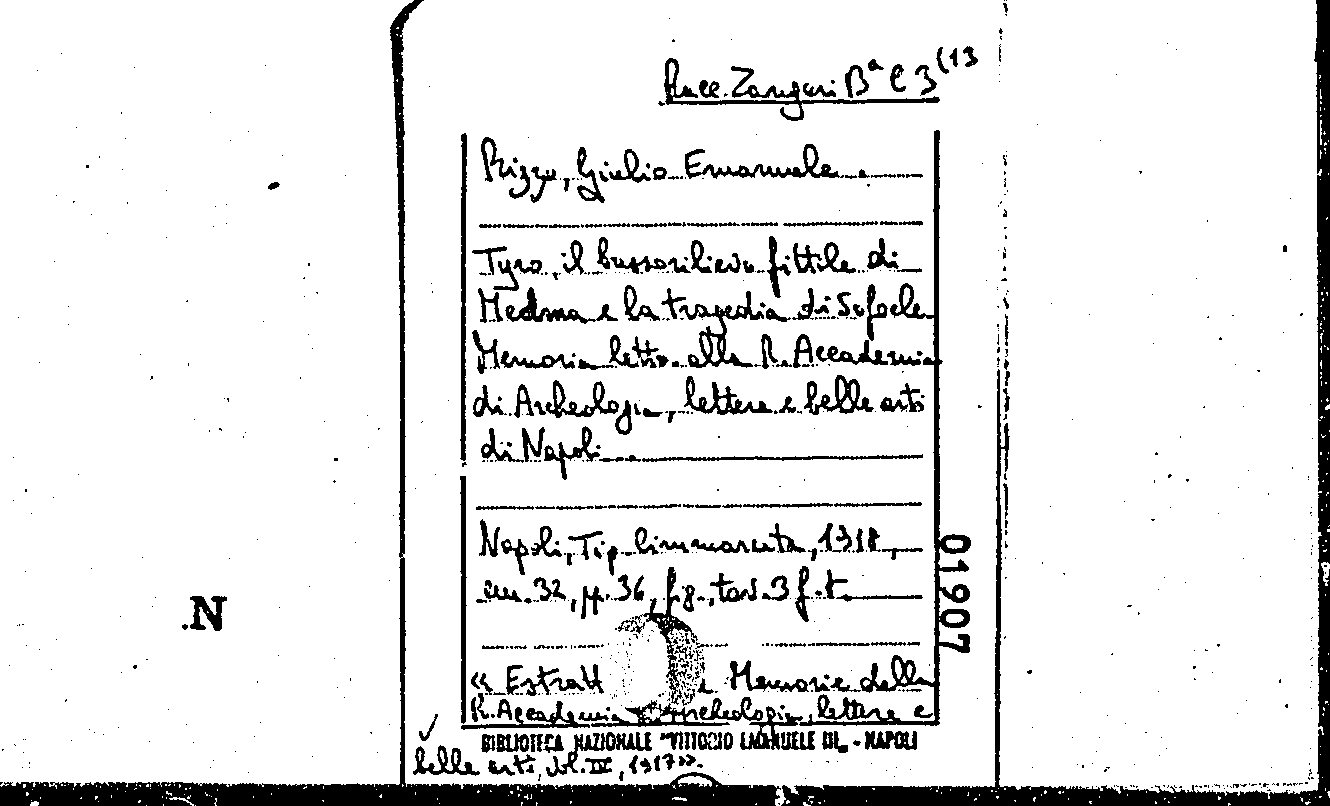 Racc. Zangari Bª C 3 (13
Rizzo, Giulio Emanuele.
Tyro, il bassorilievo fittile di
Medma e la tragedia di Sofocle
Memoria letta alla R. Accademia
di Archeologia, lettere e belle arti
di Napoli
Napoli, Tip. Cimmaruta, 1918,
cm. 32, pp. 36, fig., tav. 3 f. t.
« Estratt Memorie della
R. Accademia Archeologia, lettere e
BIBLIOTECA NAZIONALE "VITTORIO EMANUELE III" - NAPOLI
belle arti, vol. IV, 1917».
01907
.N